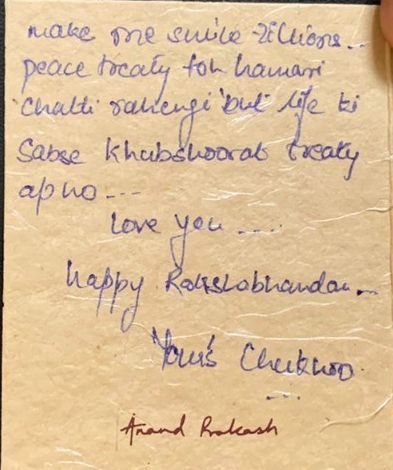 make me smile zillions...
peace treaty toh hamari
chalti rahengi but life ki
Sabse khubshoorat treaty
ap ho ---
love you ----
happy Rakshabhandan...
Your's Chukhoo
...
Anand Prakash